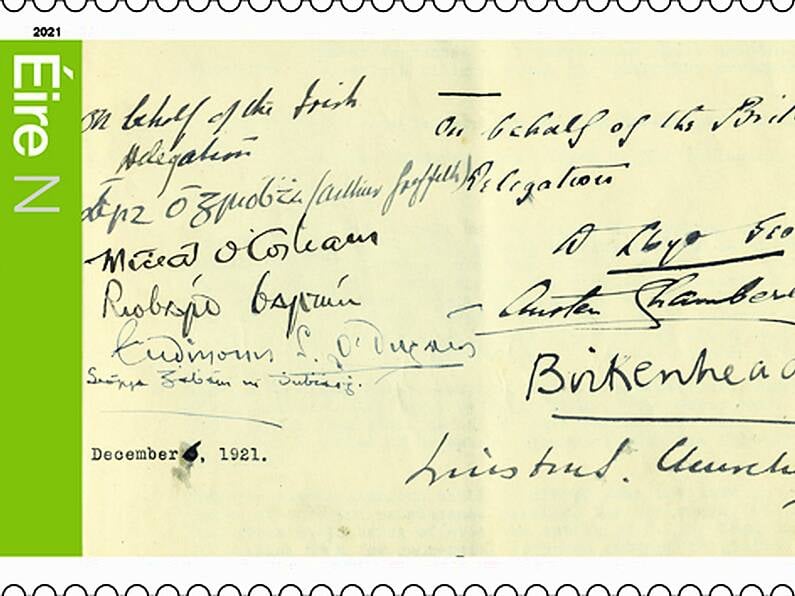 2021
Éire N
On behalf of the Irish
delegation
Art Ó Gríobhtha (Arthur Griffith)
Micheál Ó Coileain
Riobárd Bartún
Eudhmonn S. Ó Dugain
Seórsa Gabháin Uí Dhubhthaigh.
December 6, 1921.
On behalf of the Brit
Delegation
D Lloyd Geo
Austen Chamberl
Birkenhead
Winston S. Churchi